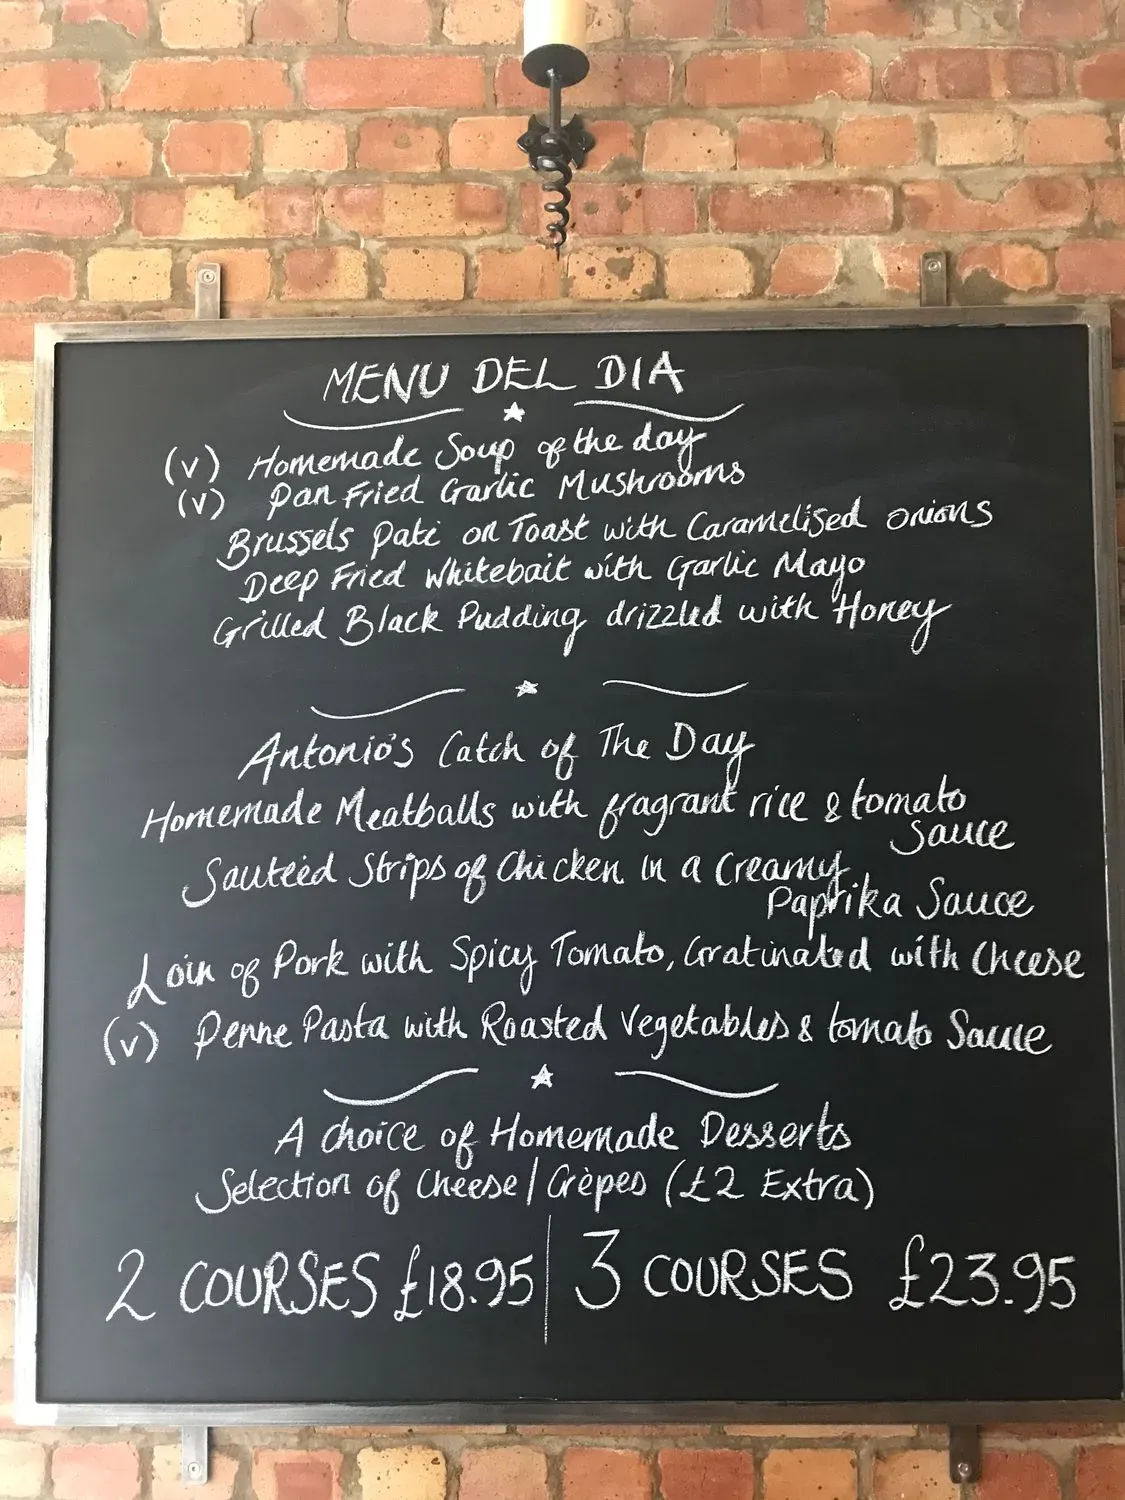 MENU DEL DIA
(v) Homemade Soup of the day
(v) Pan Fried Garlic Mushrooms
Brussels Paté on Toast with Caramelised onions
Deep Fried Whitebait with Garlic Mayo
Grilled Black Pudding drizzled with Honey
Antonio's Catch of The Day
Homemade Meatballs with fragrant rice & tomato
Sauce
Sauteéd Strips of Chicken in a Creamy
Paprika Sauce
Loin of Pork with Spicy Tomato, Gratinated with Cheese
(v) Penne Pasta with Roasted Vegetables & tomato Sauce
A choice of Homemade Desserts
Selection of Cheese/Crèpes (£2 Extra)
2 COURSES £18.95 | 3 COURSES £23.95